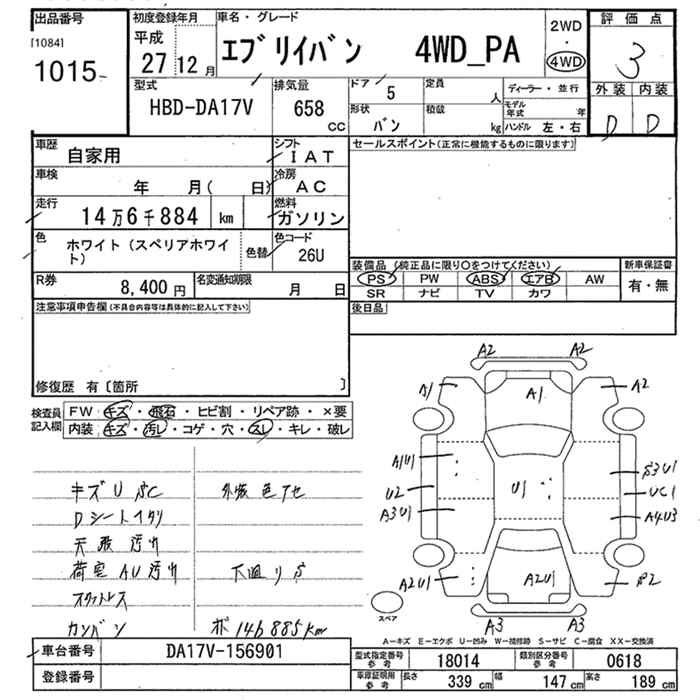 出品番号
[1084]
1015
初度登録年月
平成
27 12月
車名・グレード
エブリイバン 4WD_PA
2WD
・
4WD
評価点
3
外装 内装
D D
型式
HBD-DA17V
排気量
658
CC
ドア
5
形状
バン
定員
人
積載
kg
ディーラー・並行
モデル年式 年
ハンドル 左・右
車歴
自家用
シフト
IAT
車検
年 月( 日)
冷房
AC
走行
14万6千884 km
燃料
ガソリン
色
ホワイト(スペリアホワイト)
色替
色コード
26U
R券
8,400 円
名変通知期限
月 日
セールスポイント(正常に機能するものに限ります)
装備品(純正品に限り○をつけてください)
PS PW ABS エアB AW
SR ナビ TV カワ
新車保証書
有・無
後日品
注意事項申告欄(不具合内容等は具体的に記入して下さい)
修復歴 有〔箇所 〕
検査員記入欄
FW キズ・飛石・ヒビ割・リペア跡・×要
内装 キズ・汚レ・コゲ・穴・スレ・キレ・破レ
キズU SC 外板色アセ
Dシートイタリ
天張汚れ
荷室AU汚れ 下廻りS
スタットレス
カンバン ボ146885km
A2 A2
A1 A1 A2
A1U1 S3U1
U2 U1 UC1
A3U1 A4U3
A2U1 A2U1 S2
A3 A3
スペア
A-キズ E-エクボ U-凹み W-補修跡 S-サビ C-腐食 XX-交換済
車台番号
DA17V-156901
登録番号
型式指定番号参考
18014
類別区分番号参考
0618
車庫証明用参考
長さ 339 cm 幅 147 cm 高さ 189 cm